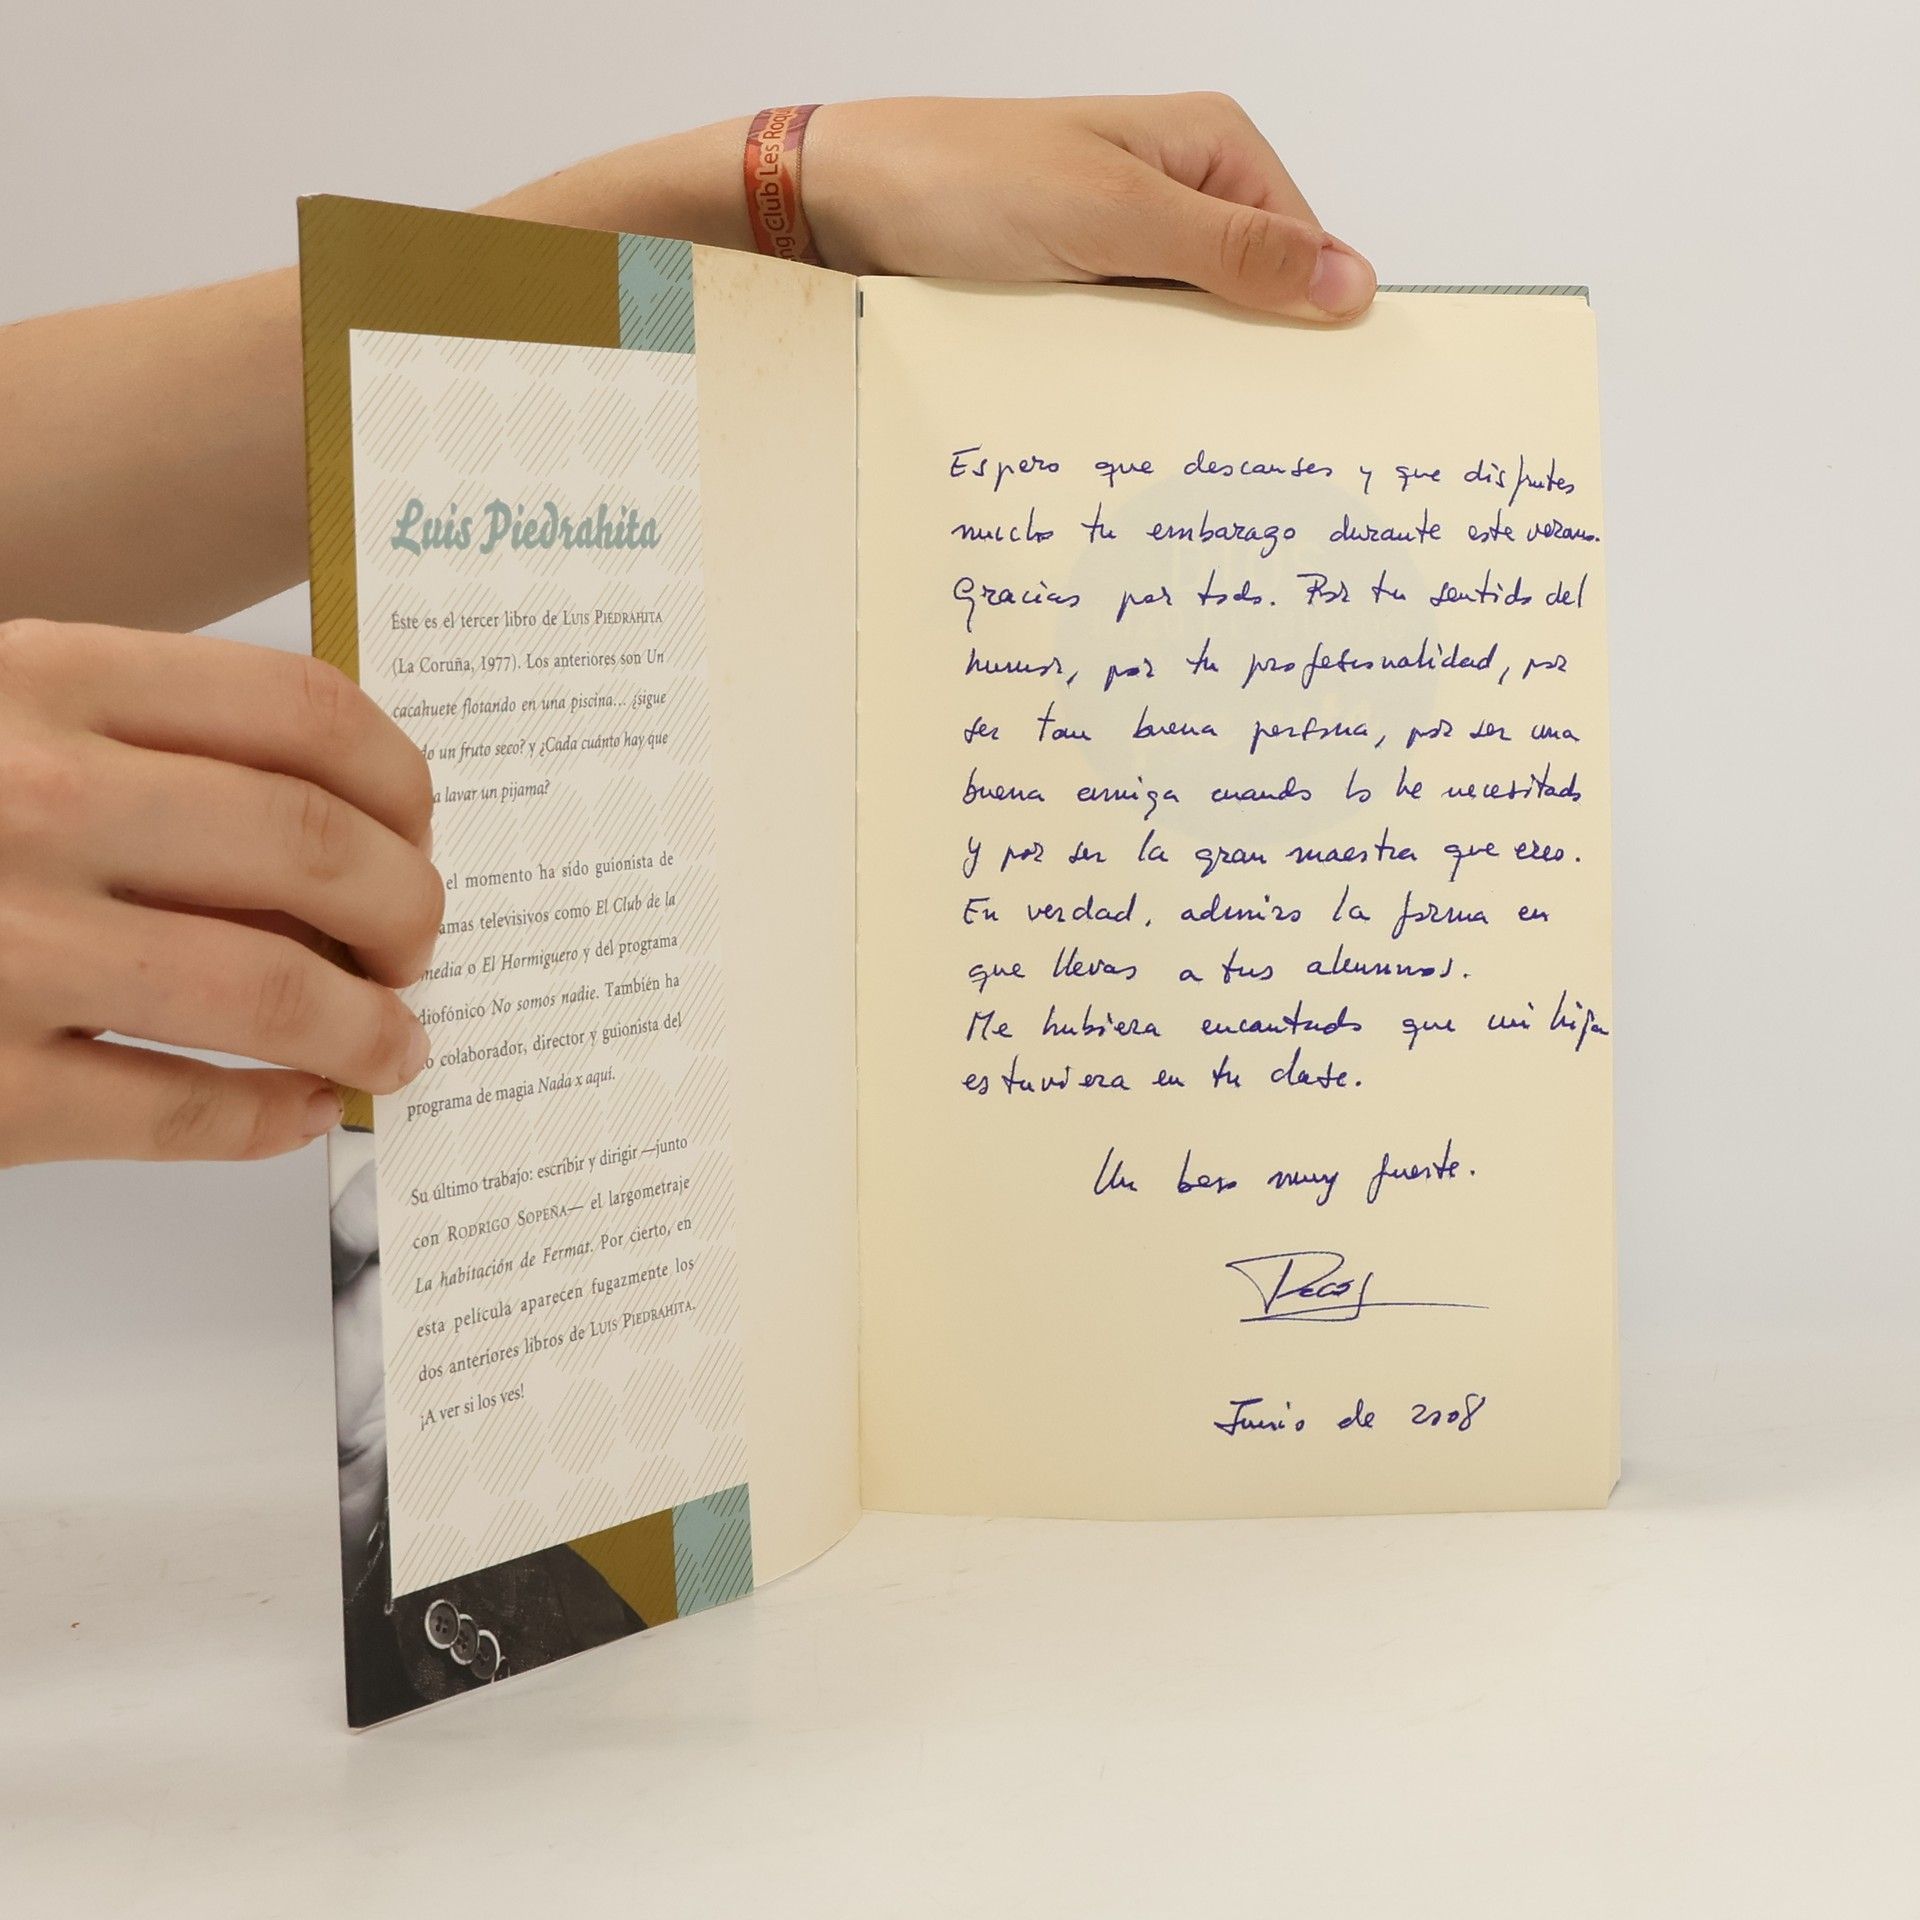 ng Club Les Roqu
Luis Piedrahita
Éste es el tercer libro de LUIS PIEDRAHITA
(La Coruña, 1977). Los anteriores son Un
cacahuete flotando en una piscina... ¿sigue
do un fruto seco? y ¿Cada cuánto hay que
a lavar un pijama?
el momento ha sido guionista de
amas televisivos como El Club de la
media o El Hormiguero y del programa
diofónico No somos nadie. También ha
o colaborador, director y guionista del
programa de magia Nada x aquí.
Su último trabajo: escribir y dirigir —junto
con RODRIGO SOPEÑA— el largometraje
La habitación de Fermat. Por cierto, en
esta película aparecen fugazmente los
dos anteriores libros de LUIS PIEDRAHITA.
¡A ver si los ves!
Espero que descanses y que disfrutes
mucho tu embarazo durante este verano.
Gracias por todo. Por tu sentido del
humor, por tu profesionalidad, por
ser tan buena persona, por ser una
buena amiga cuando lo he necesitado
y por ser la gran maestra que eres.
En verdad, admiro la forma en
que llevas a tus alumnos.
Me hubiera encantado que mi hija
estuviera en tu clase.
Un beso muy fuerte.
Junio de 2008